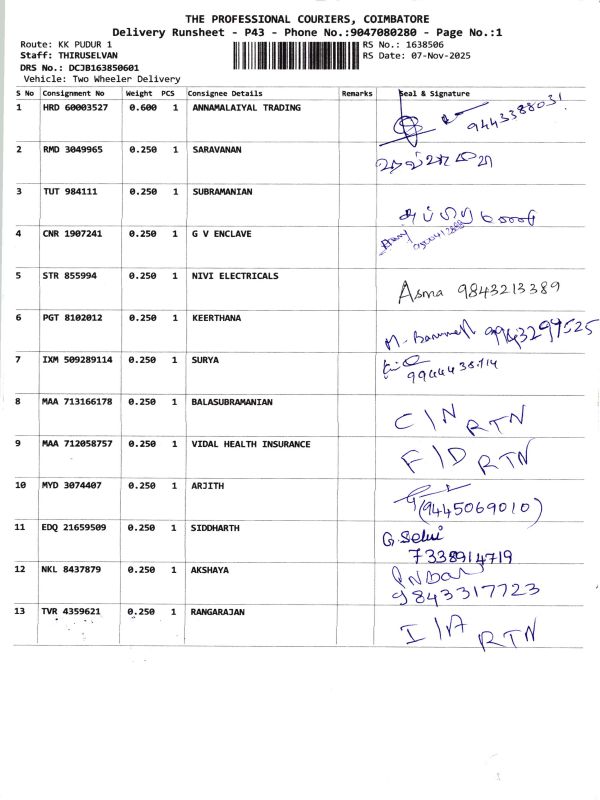 THE PROFESSIONAL COURIERS, COIMBATORE
Delivery Runsheet - P43 - Phone No.:9047080280 - Page No.:1
Route: KK PUDUR 1 RS No.: 1638506
Staff: THIRUSELVAN RS Date: 07-Nov-2025
DRS No.: DCJB163850601
Vehicle: Two Wheeler Delivery
S No Consignment No Weight PCS Consignee Details Remarks Seal & Signature
1 HRD 60003527 0.600 1 ANNAMALAIYAL TRADING 9443388031
2 RMD 3049965 0.250 1 SARAVANAN
3 TUT 984111 0.250 1 SUBRAMANIAN
4 CNR 1907241 0.250 1 G V ENCLAVE
5 STR 855994 0.250 1 NIVI ELECTRICALS Asma 9843213389
6 PGT 8102012 0.250 1 KEERTHANA
7 IXM 509289114 0.250 1 SURYA
8 MAA 713166178 0.250 1 BALASUBRAMANIAN C/N RTN
9 MAA 712058757 0.250 1 VIDAL HEALTH INSURANCE F/D RTN
10 MYD 3074407 0.250 1 ARJITH (9445069010)
11 EDQ 21659509 0.250 1 SIDDHARTH G. Selvi
7338914719
12 NKL 8437879 0.250 1 AKSHAYA
9843317723
13 TVR 4359621 0.250 1 RANGARAJAN I/A RTN